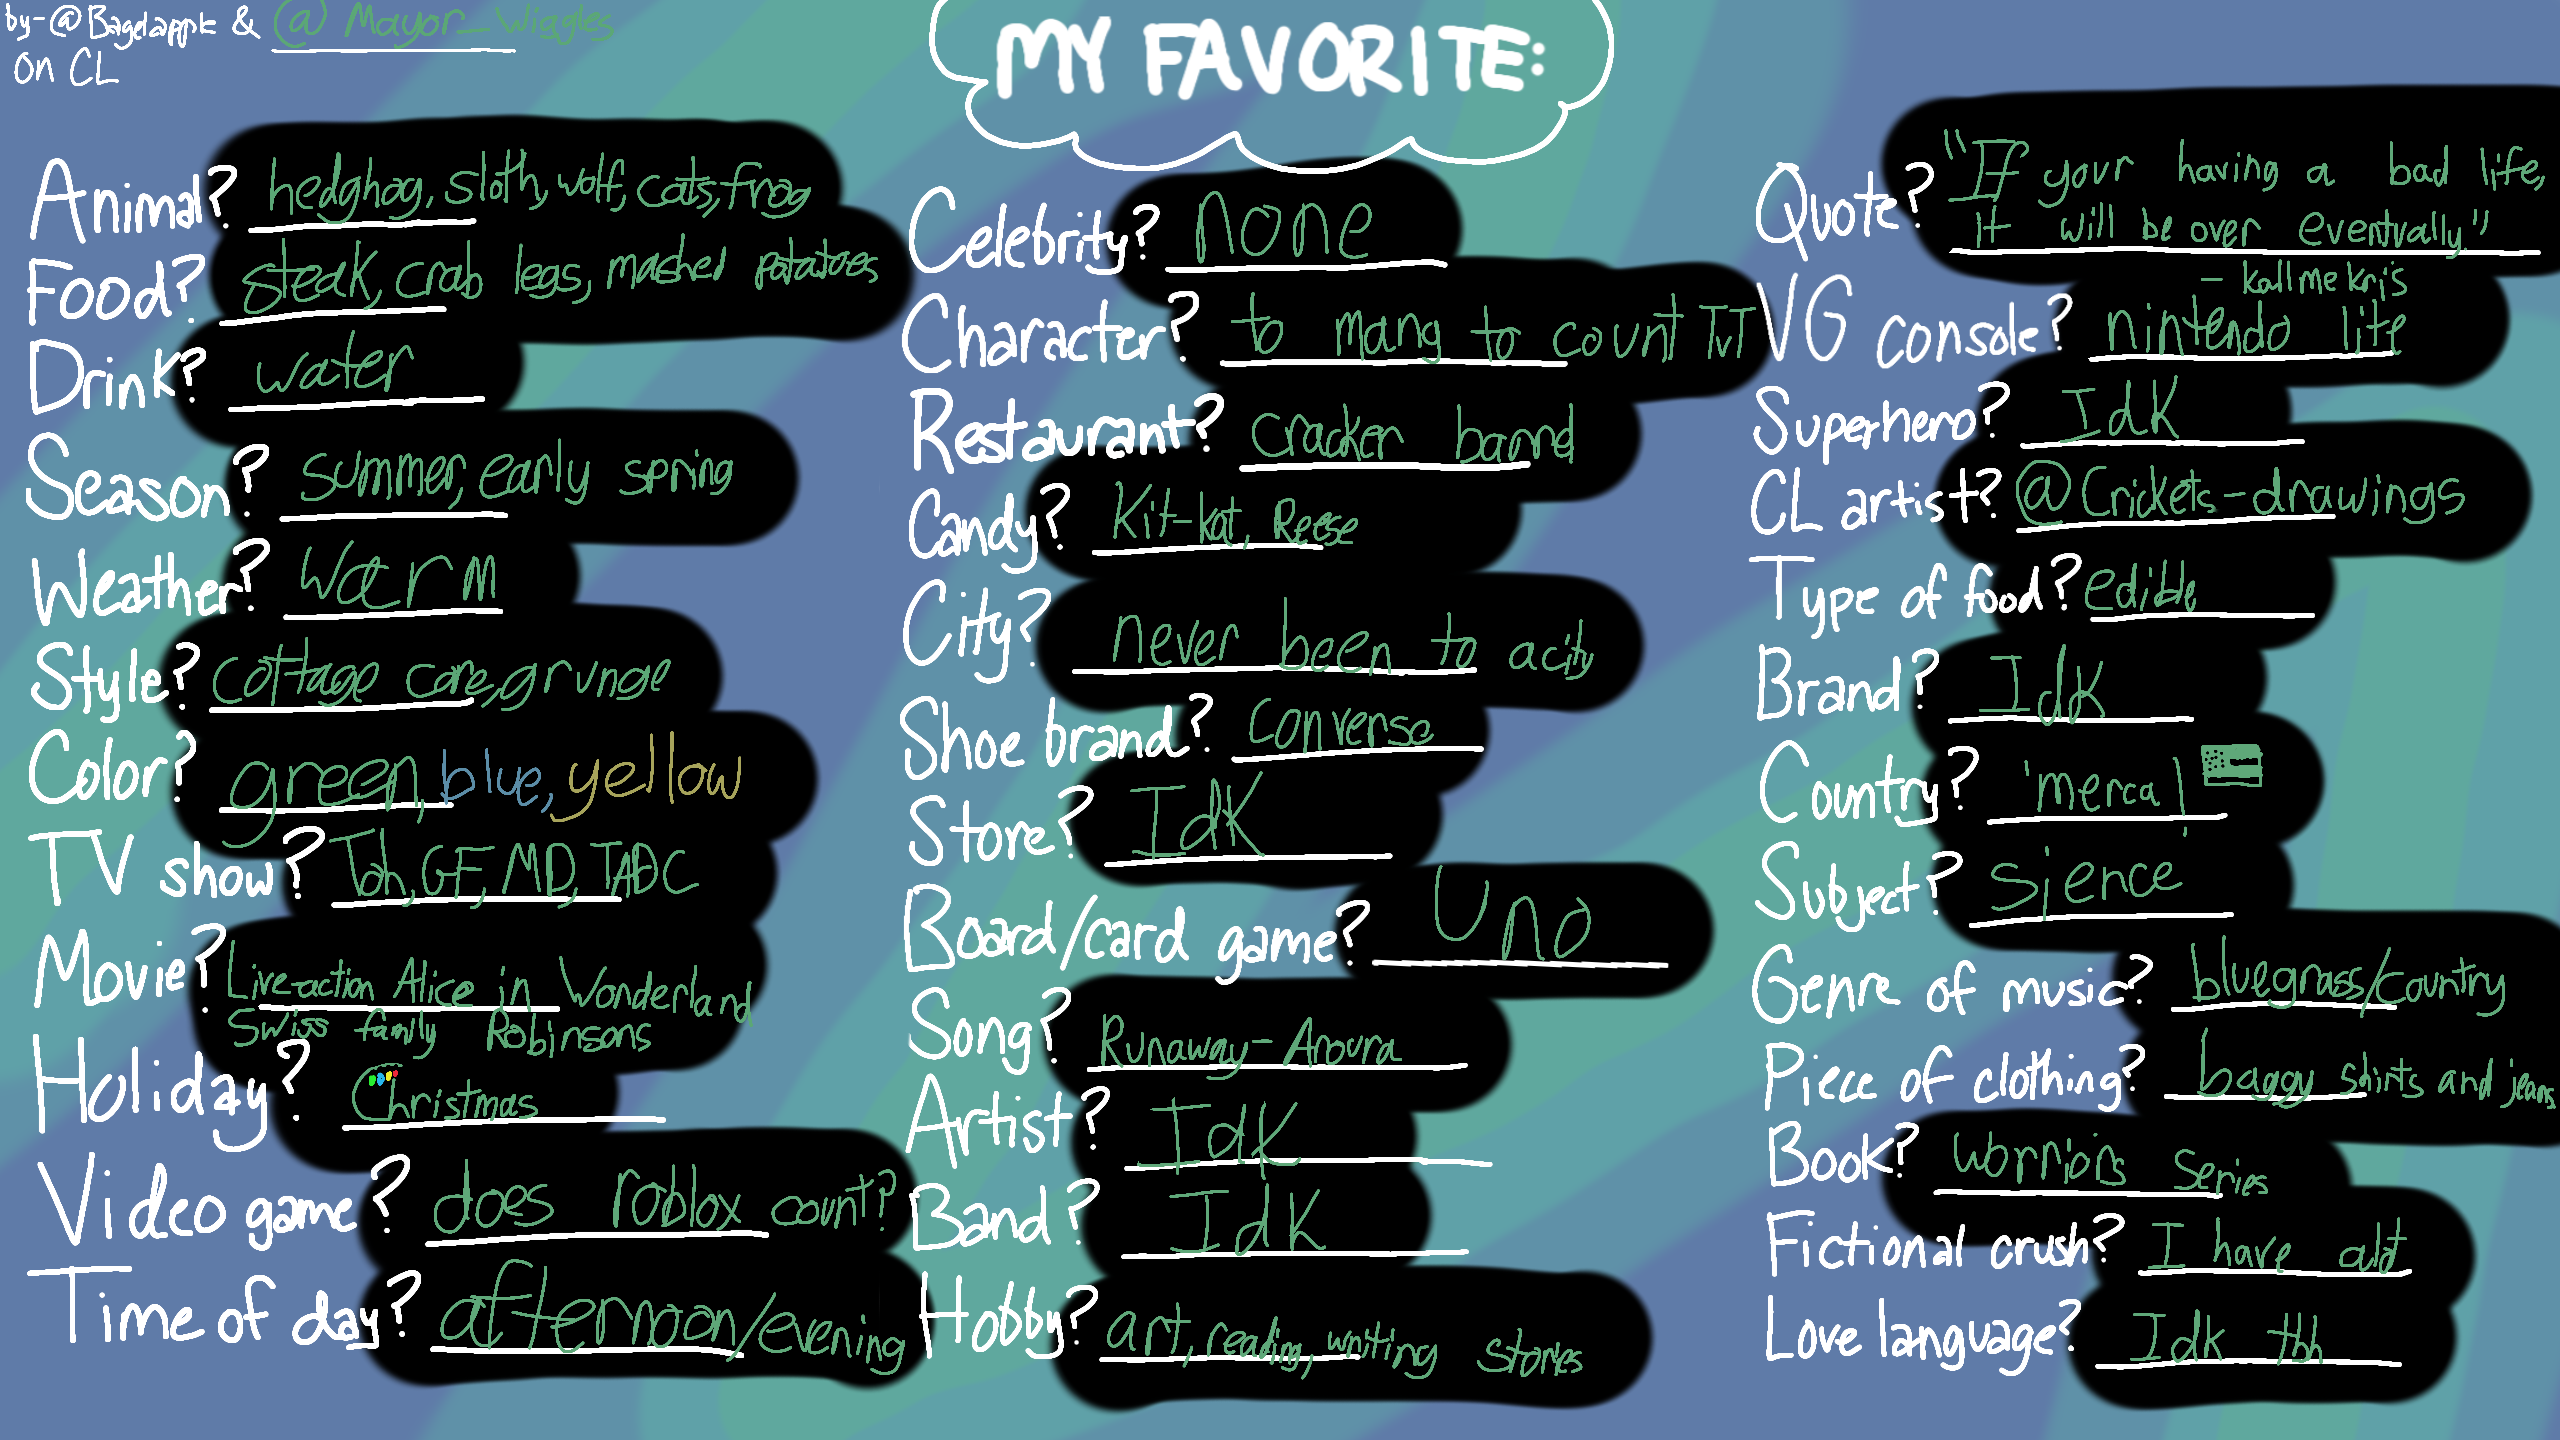 by-@Bagelapple & @Mayor_Wiggles
on CL
MY FAVORITE:
Animal? hedghog, sloth, wolf, cats, frog
Food? steak, crab legs, mashed potatoes
Drink? water
Season? summer, early spring
Weather? warm
Style? cottage core, grunge
Color? green, blue, yellow
TV show? Toh, GF, MD, TADC
Movie? Live-action Alice in Wonderland
Swiss family Robinsons
Holiday? Christmas
Video game? does roblox count?
Time of day? afternoon/evening
Celebrity? none
Character? to mang to count TvT
Restaurant? cracker barrel
Candy? Kit-kat, Reese
City? never been to a city
Shoe brand? converse
Store? Idk
Board/card game? Uno
Song? Runaway-Aroura
Artist? Idk
Band? Idk
Hobby? art, reading, writing stories
Quote? "If your having a bad life,
it will be over eventually."
- kallmekris
VG console? nintendo lite
Superhero? Idk
CL artist? @Crickets-drawings
Type of food? edible
Brand? Idk
Country? 'merca!
Subject? sience
Genre of music? bluegrass/country
Piece of clothing? baggy shirts and jeans
Book? worriors series
Fictional crush? I have alot
Love language? Idk tbh